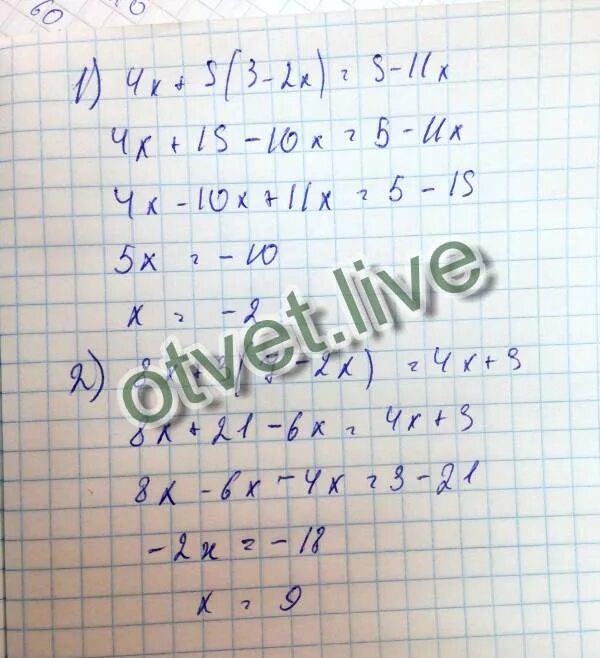 60
1) 4x + 5(3-2x) = 5-11x
4x + 15 - 10x = 5 - 11x
4x - 10x + 11x = 5 - 15
5x = -10
x = -2
2) 8x + 3(7-2x) = 4x + 3
8x + 21 - 6x = 4x + 3
8x - 6x - 4x = 3 - 21
-2x = -18
x = 9
otvet.live